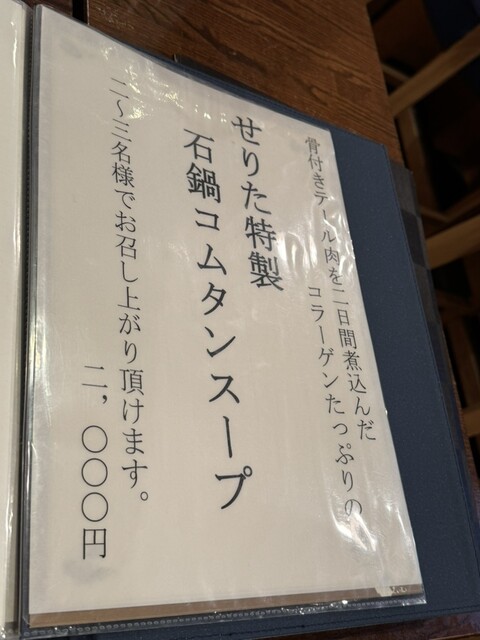 骨付きテール肉を二日間煮込んだ
コラーゲンたっぷりの
せりた特製
石鍋コムタンスープ
二〜三名様でお召し上がり頂けます。
二，〇〇〇円